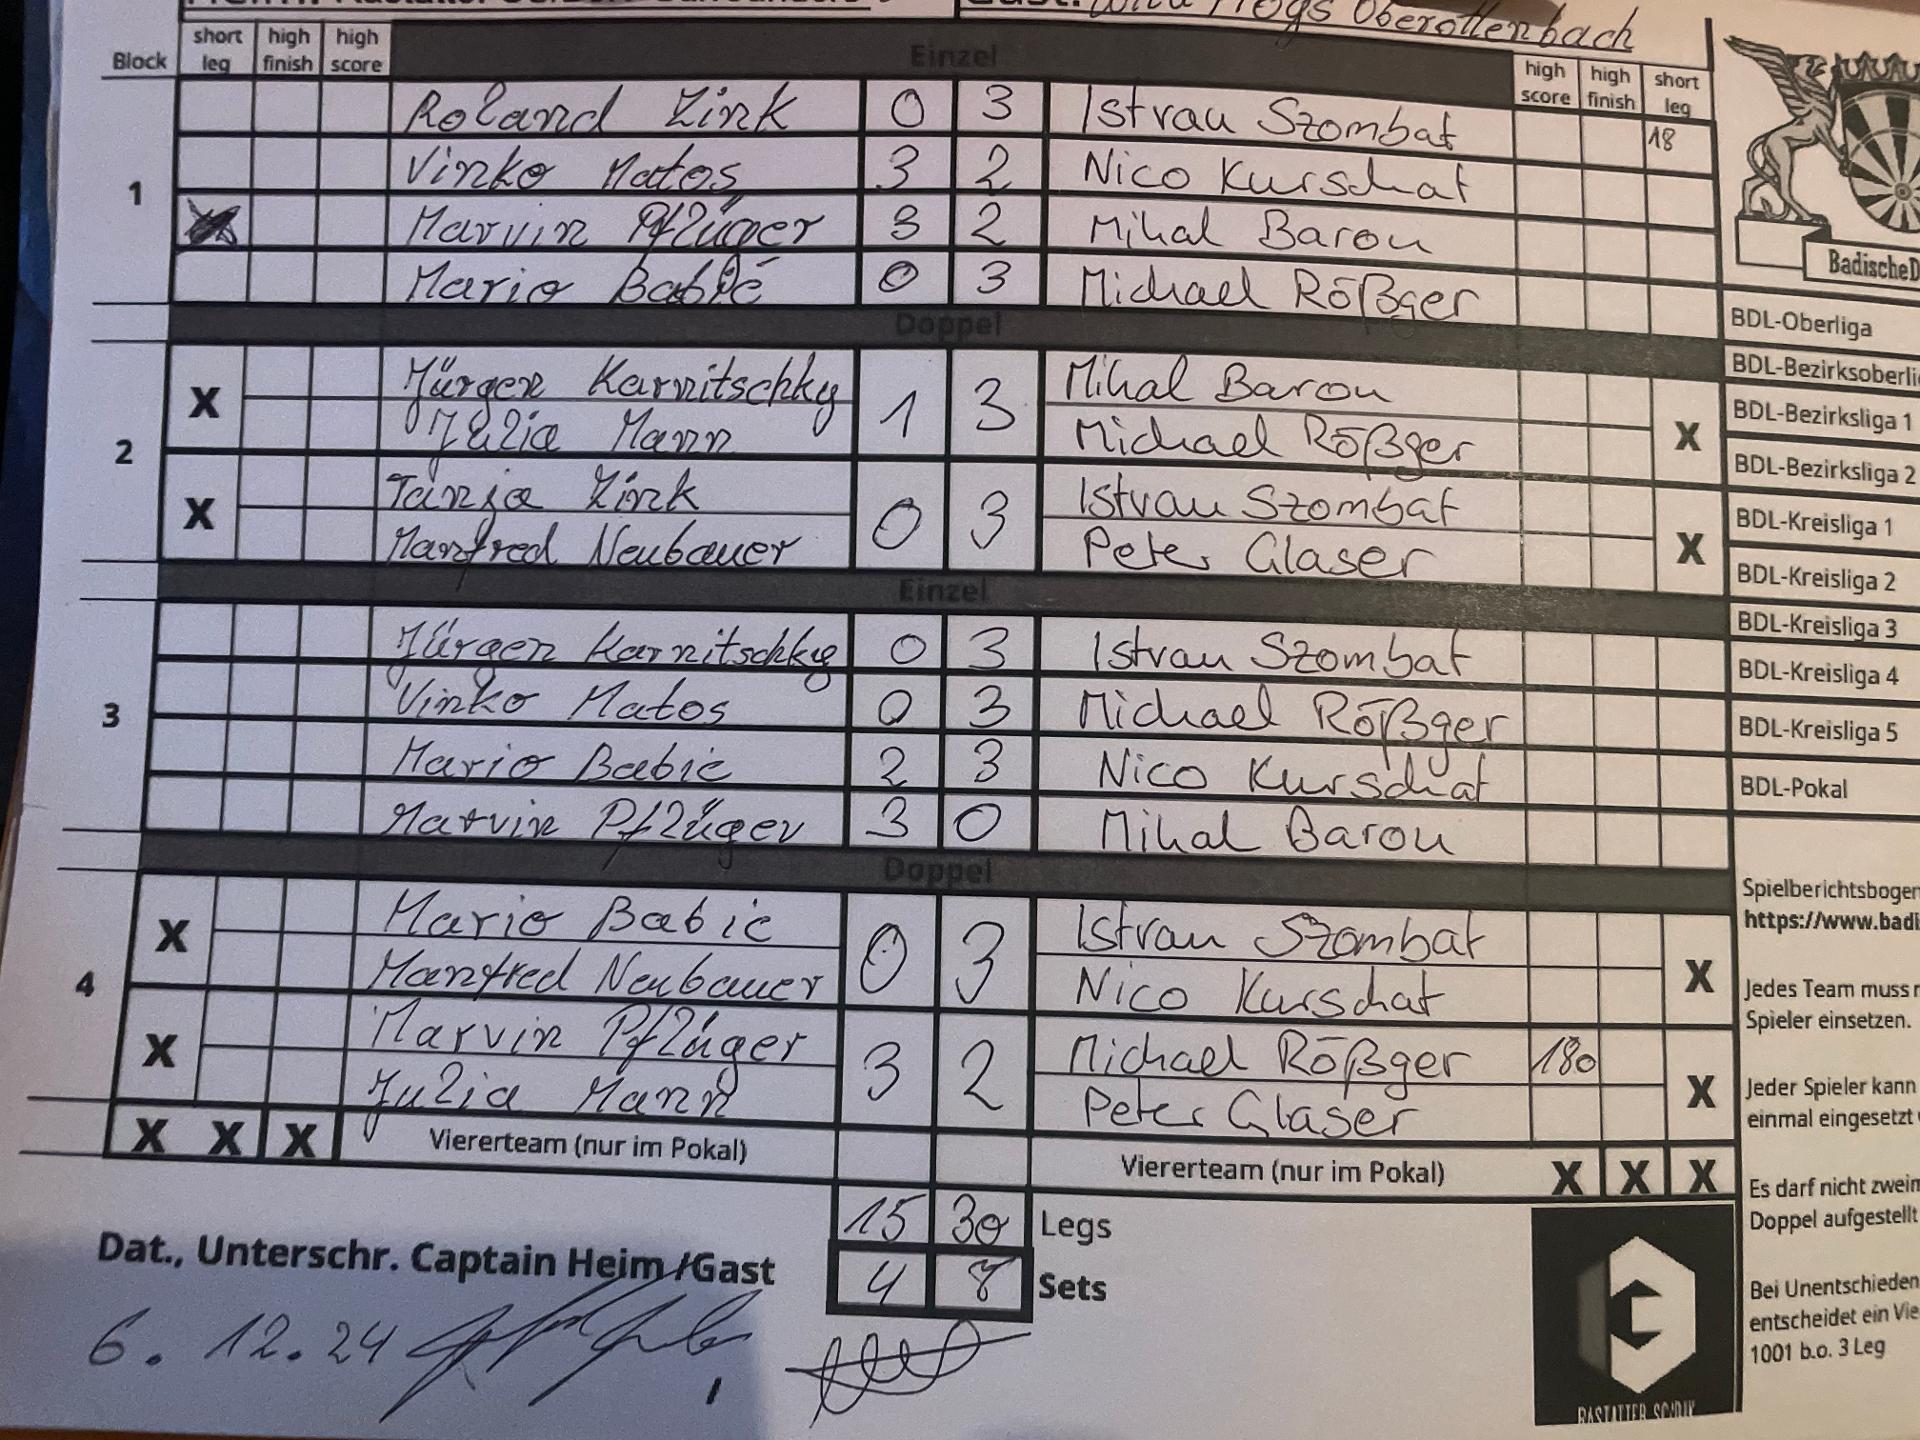 Gast: Wild Frogs Oberottenbach
Block short leg high finish high score Einzel high score high finish short leg
Roland Zink 0 3 Istvan Szombat 18
1 Vinko Matos 3 2 Nico Kurschat
Marvin Pflüger 3 2 Mihal Barou
Mario Babić 0 3 Michael Rößger
BadischeD
Doppel
BDL-Oberliga
Jürgen Karnitschky 1 3 Mihal Barou
BDL-Bezirksoberli
2 X Julia Mann Michael Rößger X
BDL-Bezirksliga 1
BDL-Bezirksliga 2
X Tanja Zink 0 3 Istvan Szombat X
BDL-Kreisliga 1
Manfred Neubauer Peter Glaser
BDL-Kreisliga 2
Einzel
BDL-Kreisliga 3
Jürgen Karnitschky 0 3 Istvan Szombat
BDL-Kreisliga 4
3 Vinko Matos 0 3 Michael Rößger
BDL-Kreisliga 5
Mario Babic 2 3 Nico Kurschat
BDL-Pokal
Marvin Pflüger 3 0 Mihal Barou
Doppel
Spielberichtsbogen
https://www.badi
4 X Mario Babic 0 3 Istvan Szombat X
Manfred Neubauer Nico Kurschat
Jedes Team muss
Spieler einsetzen.
X Marvin Pflüger 3 2 Michael Rößger 180 X
Julia Mann Peter Glaser
Jeder Spieler kann
einmal eingesetzt
X X X Viererteam (nur im Pokal) Viererteam (nur im Pokal) X X X
Es darf nicht zweim
Doppel aufgestellt
15 30 Legs
Dat., Unterschr. Captain Heim /Gast 4 8 Sets
Bei Unentschieden
entscheidet ein Vie
1001 b.o. 3 Leg
6.12.24